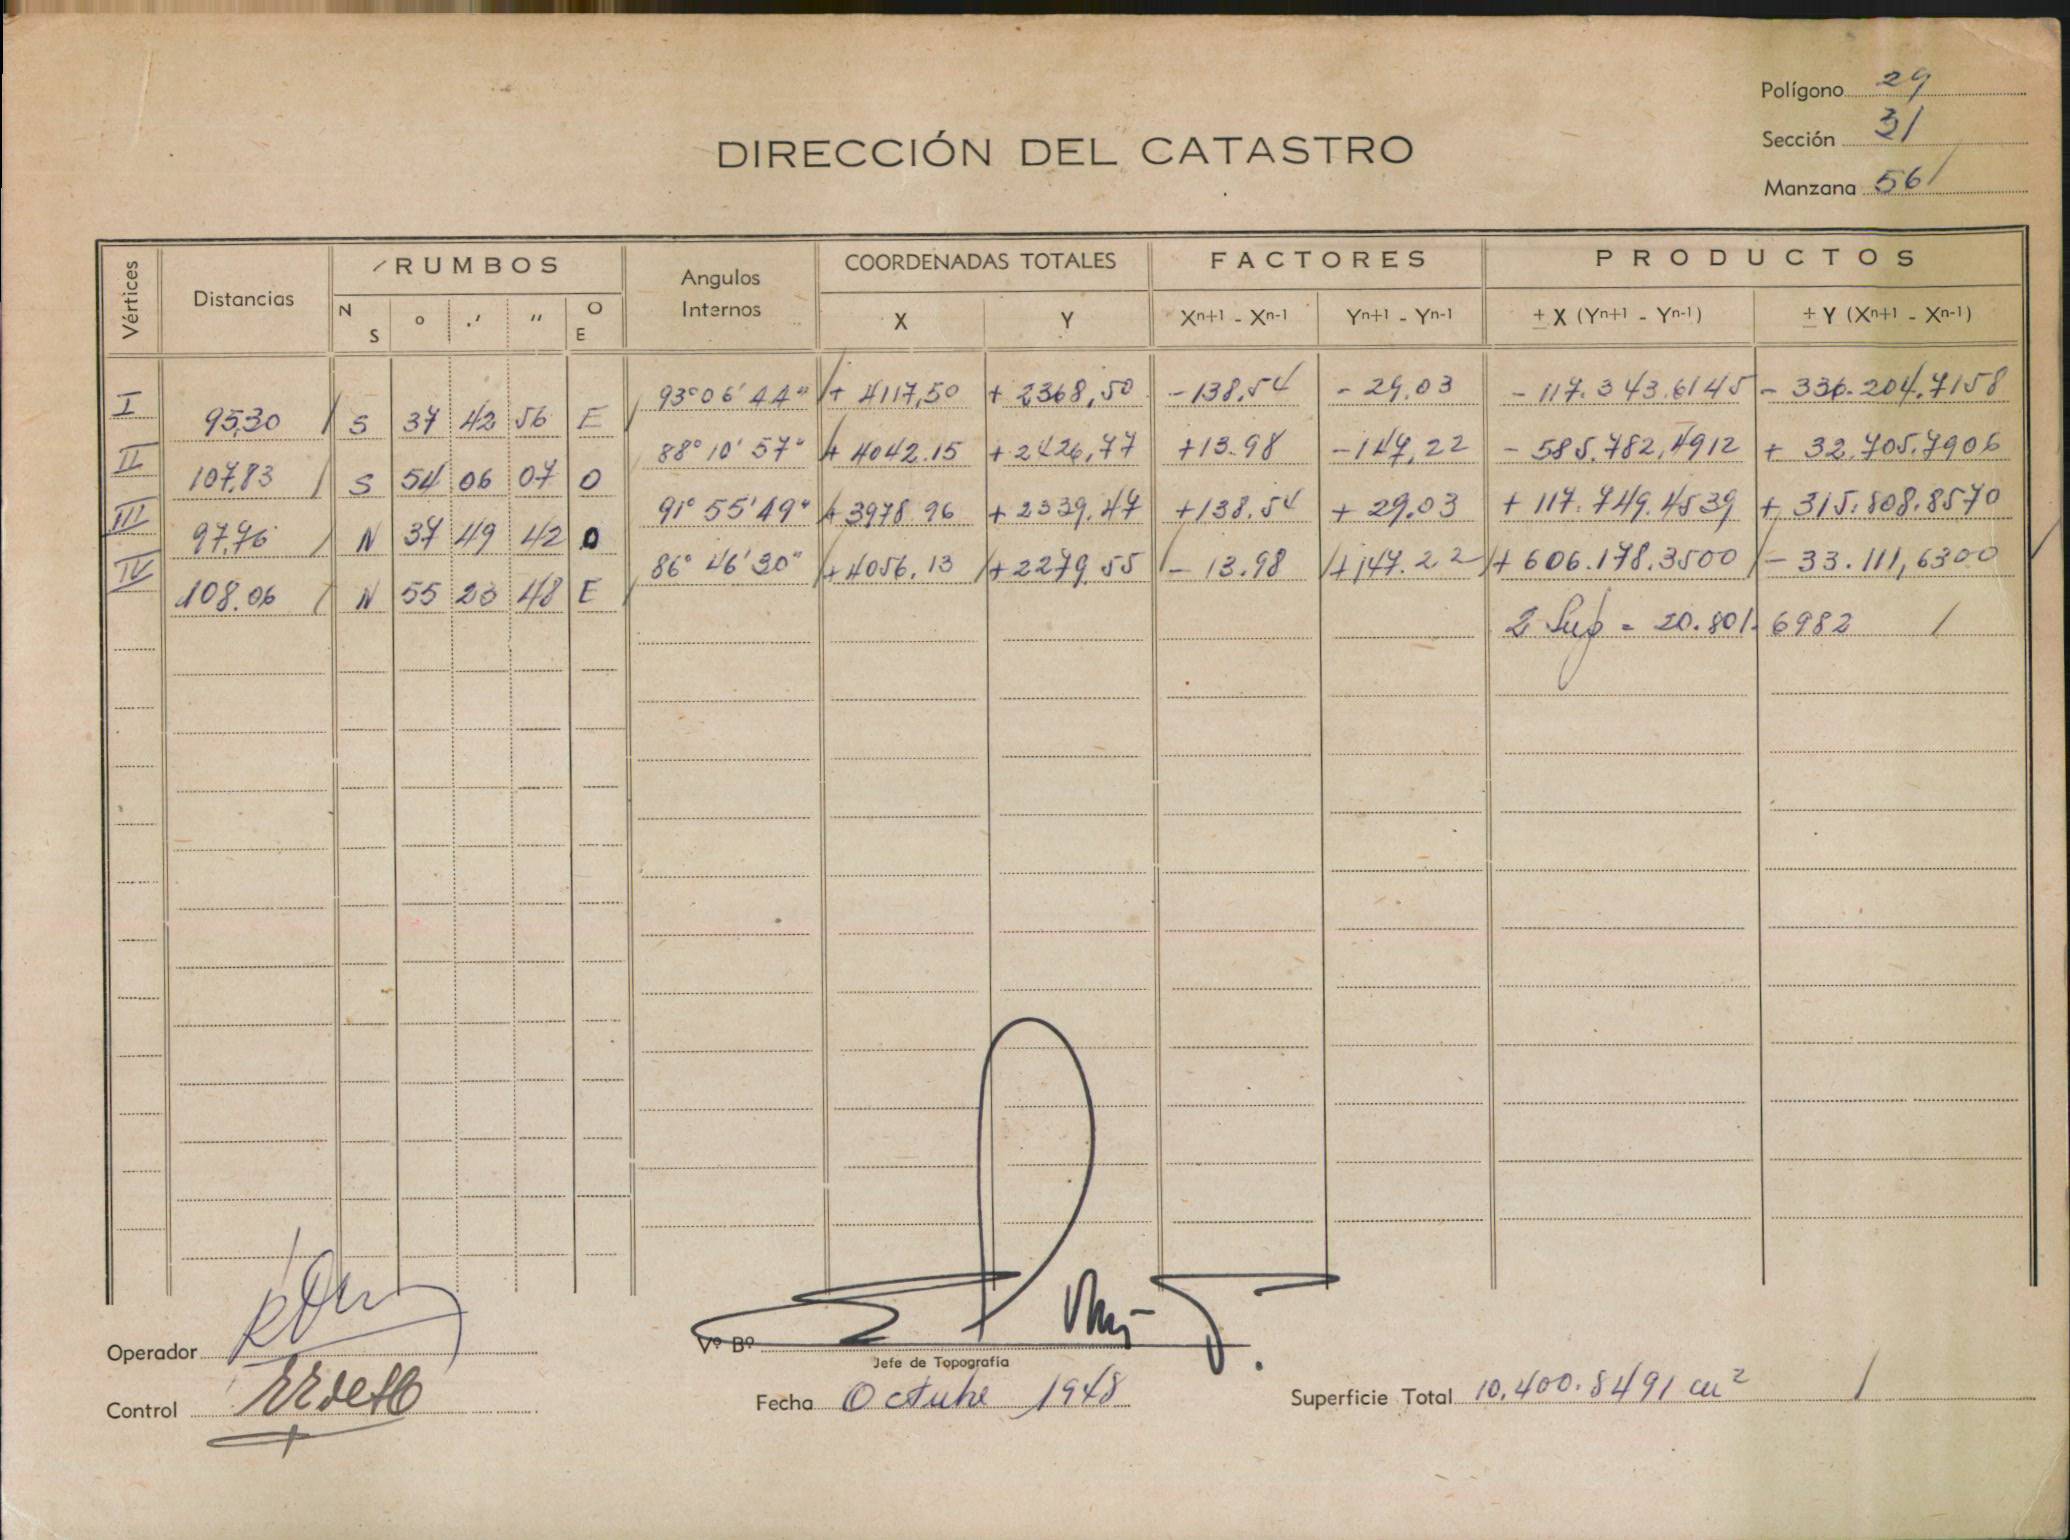 Polígono 29
Sección 31
Manzana 56
DIRECCIÓN DEL CATASTRO
Vértices Distancias RUMBOS Angulos Internos COORDENADAS TOTALES FACTORES PRODUCTOS
N S ° ' " O E X Y Xn+1 - Xn-1 Yn+1 - Yn-1 ± X (Yn+1 - Yn-1) ± Y (Xn+1 - Xn-1)
I 93°06'44" + 4117,50 + 2368,50 -138.54 - 29.03 - 117.343.6145 - 336.204.7158
95,30 S 37 42 56 E
II 88°10'57" + 4042.15 + 2426,77 +13.98 -147,22 - 585.782,4912 + 32.705.7906
107,83 S 54 06 07 O
III 91°55'49" + 3978.96 + 2339.47 +138.54 + 29.03 + 117.749.4539 + 315.808.8570
97,76 N 37 49 42 O
IV 86°46'30" + 4056.13 + 2279.55 - 13.98 +147.22 + 606.178.3500 - 33.111,6300
108.06 N 55 23 48 E
2 Sup = 20.801.6982
Operador
Vº Bº
Jefe de Topografía
Control
Fecha Octubre 1948
Superficie Total 10.400.8491 m²